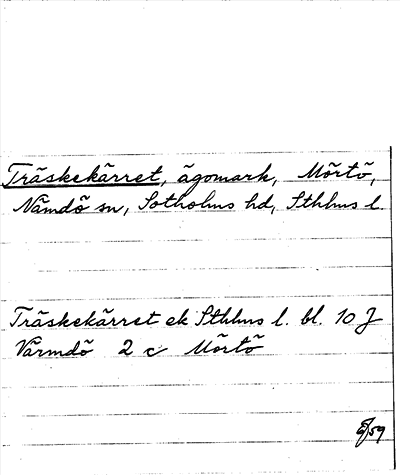 Träskekärret, ägomark, Mörtö,
Nämdö sn, Sotholms hd, Sthlms l.
Träskekärret ek Sthlms l. bl. 10 J
Värmdö 2 c Mörtö
/59